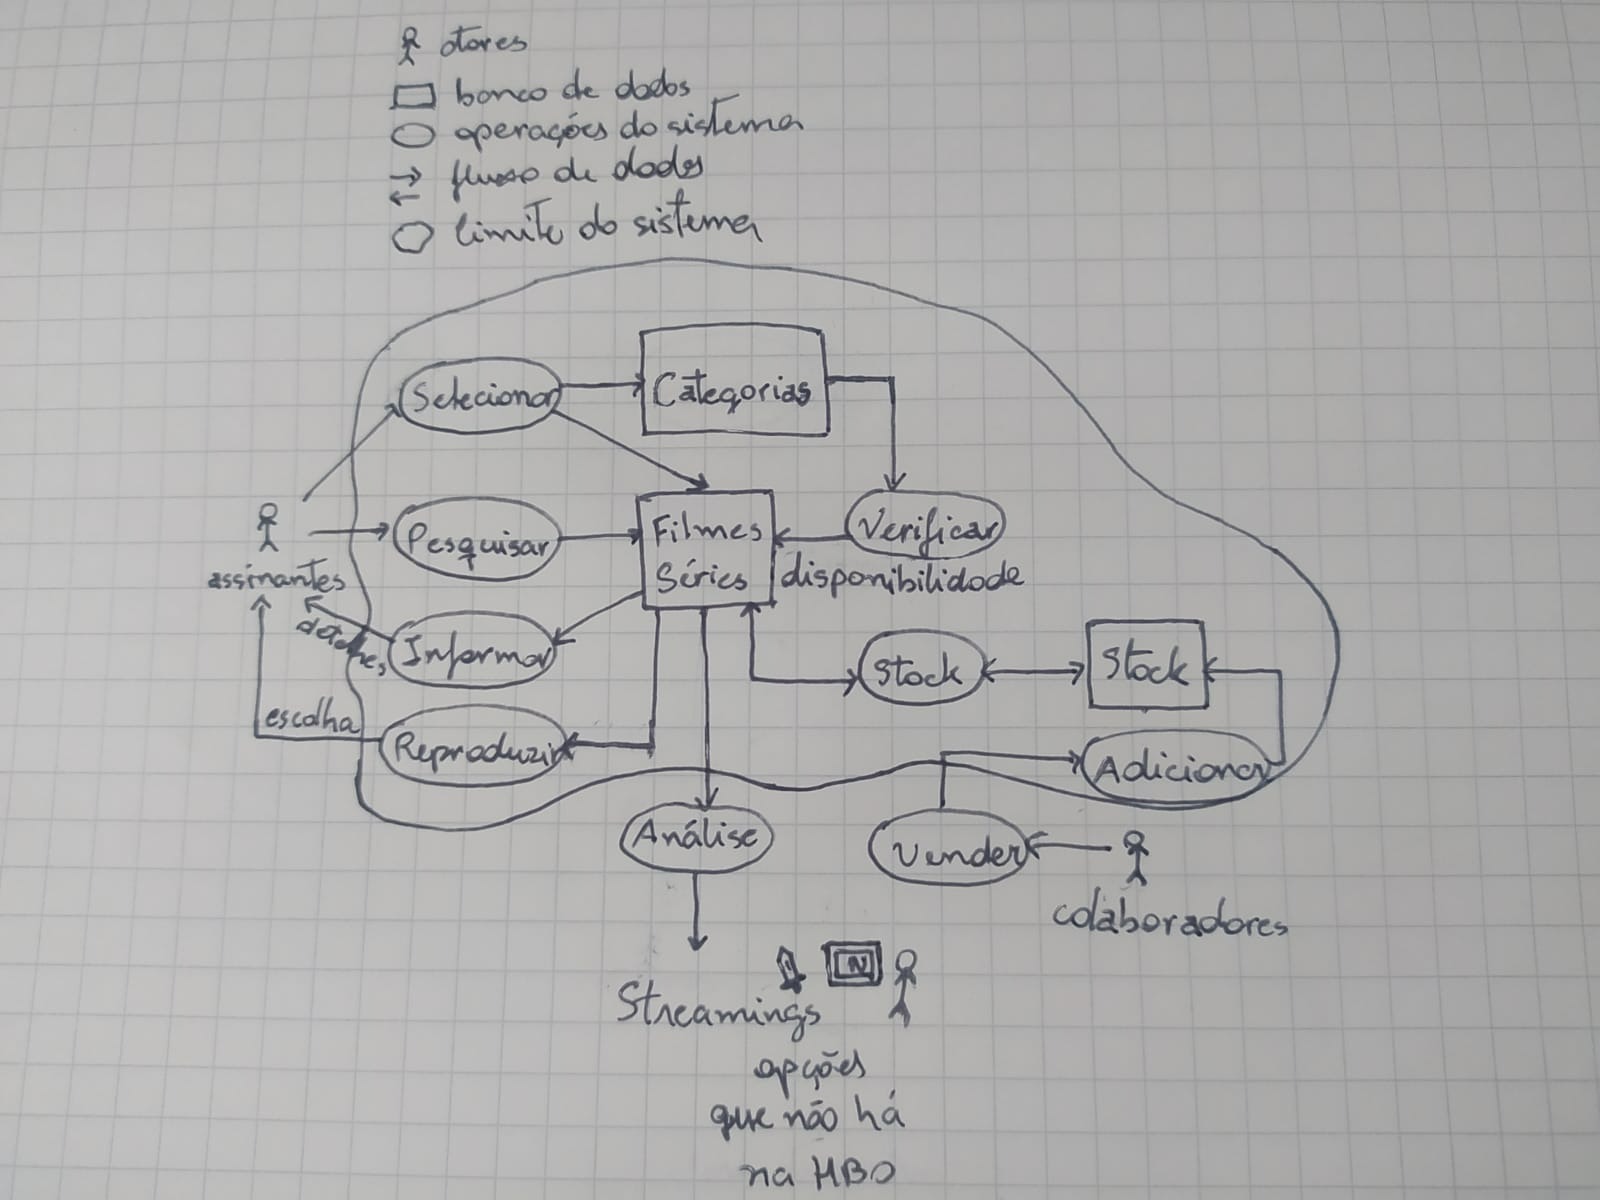 atores
banco de dados
operações do sistema
fluxo de dados
limite do sistema
Selecionar
Categorias
Pesquisar
Filmes
Séries
Verificar
disponibilidade
assinantes
detalhes
Informar
Stock
Stock
escolha
Reproduzir
Adicionar
Análise
Vender
colaboradores
N
Streamings
opções
que não há
na HBO